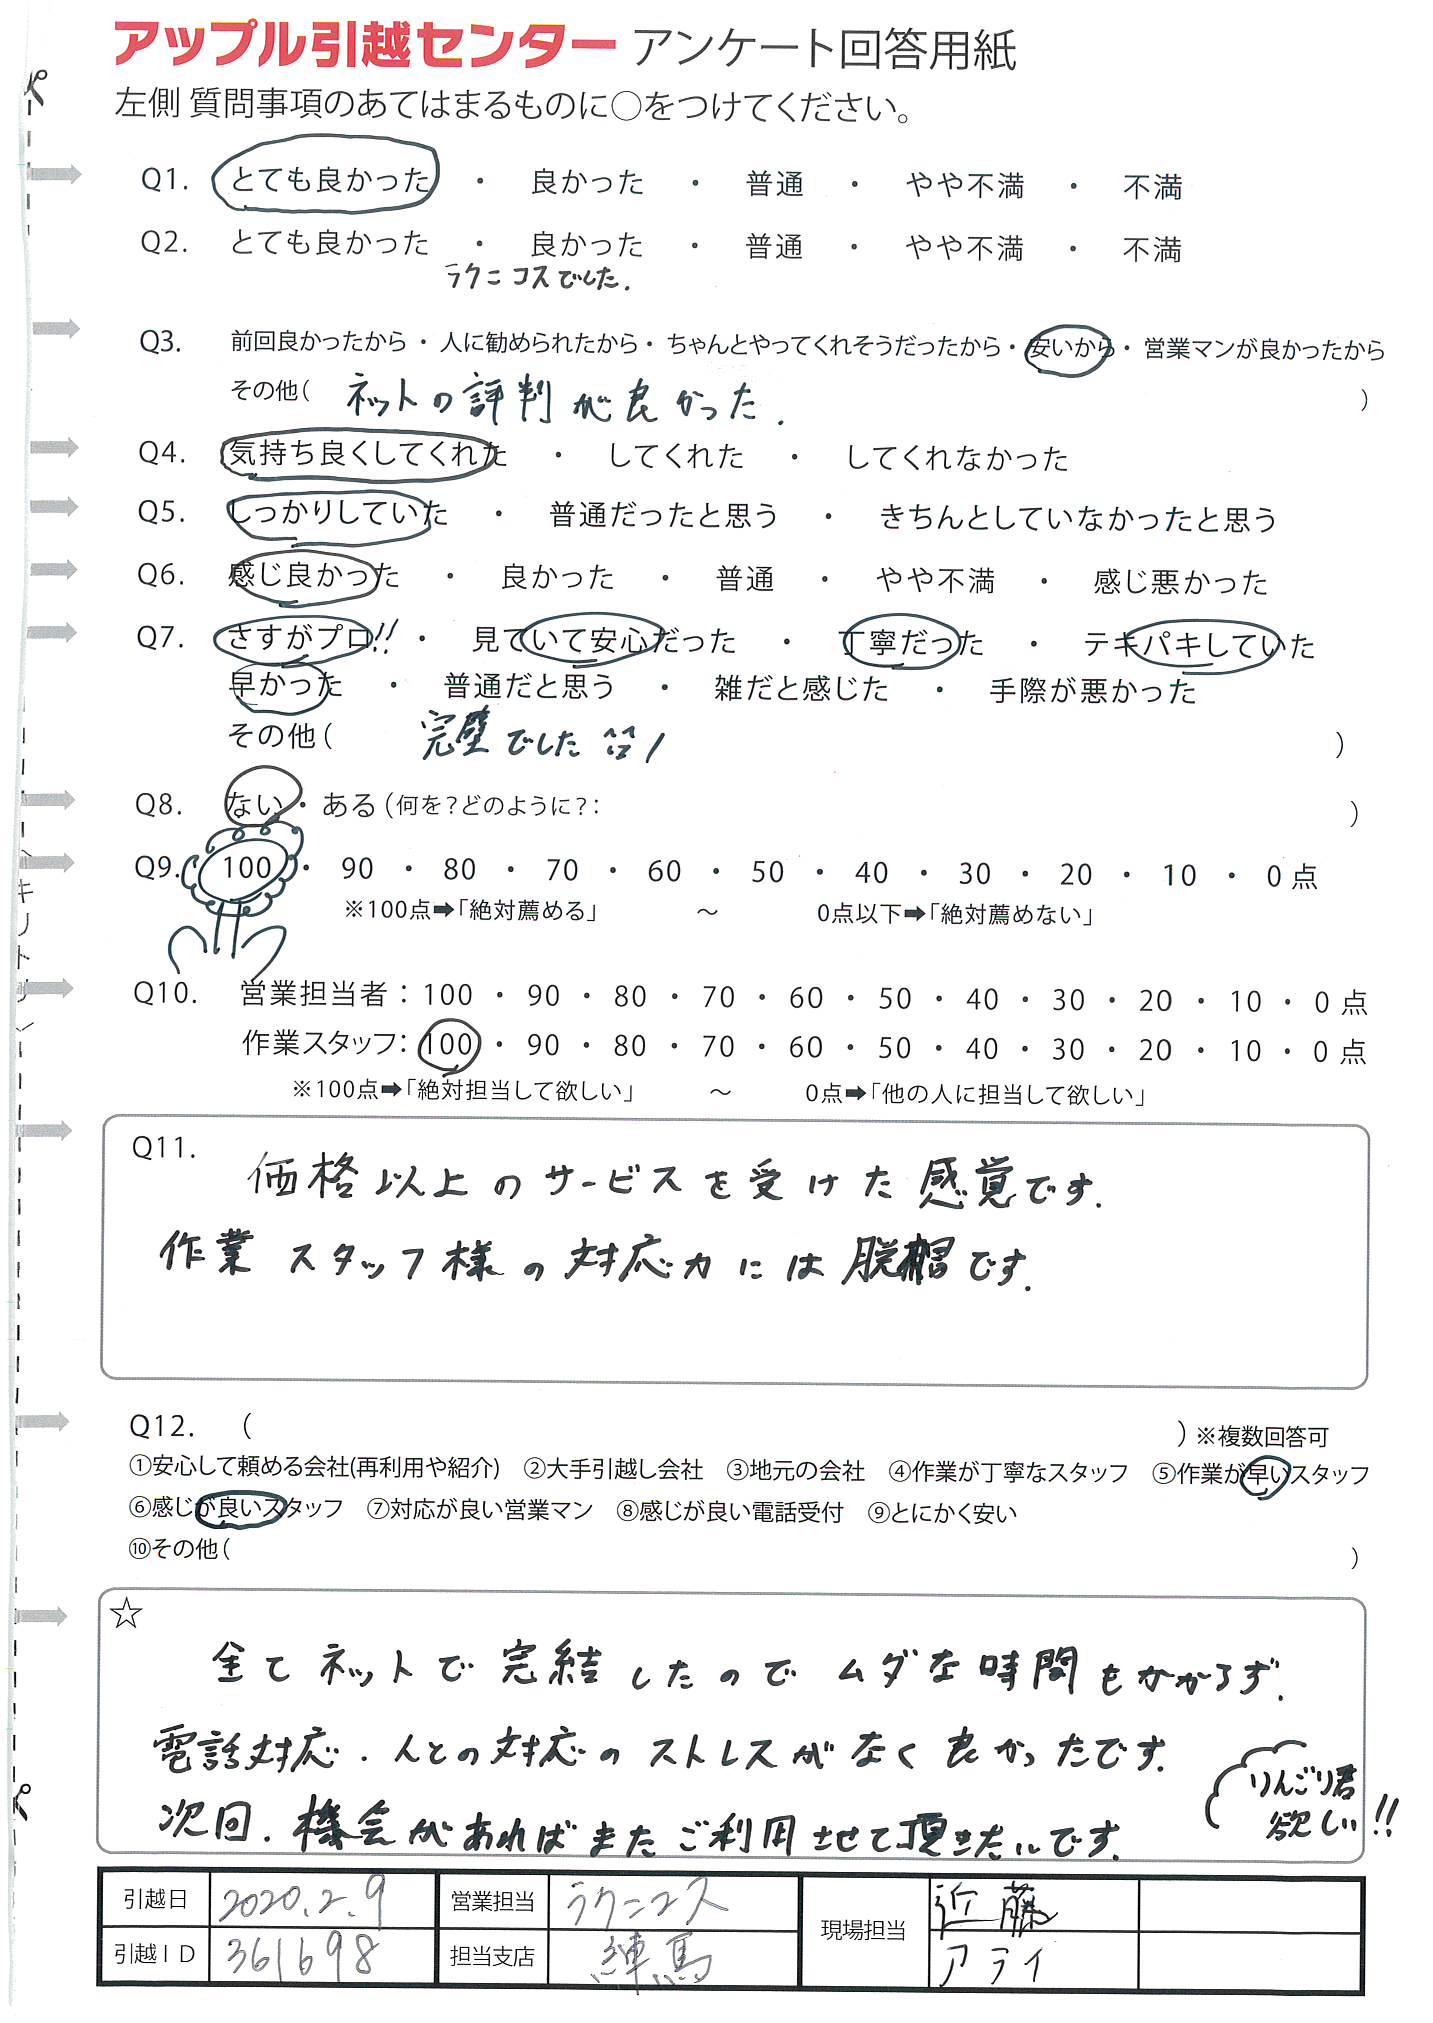 アップル引越センター アンケート回答用紙
左側 質問事項のあてはまるものに○をつけてください。
Q1. とても良かった ・ 良かった ・ 普通 ・ やや不満 ・ 不満
Q2. とても良かった ・ 良かった ・ 普通 ・ やや不満 ・ 不満
ラクニコスでした.
Q3. 前回良かったから ・ 人に勧められたから ・ ちゃんとやってくれそうだったから ・ 安いから ・ 営業マンが良かったから
その他( ネットの評判が良かった. )
Q4. 気持ち良くしてくれた ・ してくれた ・ してくれなかった
Q5. しっかりしていた ・ 普通だったと思う ・ きちんとしていなかったと思う
Q6. 感じ良かった ・ 良かった ・ 普通 ・ やや不満 ・ 感じ悪かった
Q7. さすがプロ!! ・ 見ていて安心だった ・ 丁寧だった ・ テキパキしていた
早かった ・ 普通だと思う ・ 雑だと感じた ・ 手際が悪かった
その他( 完璧でした )
Q8. ない ・ ある (何を?どのように?: )
Q9. 100 ・ 90 ・ 80 ・ 70 ・ 60 ・ 50 ・ 40 ・ 30 ・ 20 ・ 10 ・ 0 点
※100点➡「絶対薦める」 ～ 0点以下➡「絶対薦めない」
Q10. 営業担当者 : 100 ・ 90 ・ 80 ・ 70 ・ 60 ・ 50 ・ 40 ・ 30 ・ 20 ・ 10 ・ 0 点
作業スタッフ: 100 ・ 90 ・ 80 ・ 70 ・ 60 ・ 50 ・ 40 ・ 30 ・ 20 ・ 10 ・ 0 点
※100点➡「絶対担当して欲しい」 ～ 0点➡「他の人に担当して欲しい」
Q11. 価格以上のサービスを受けた感覚です.
作業スタッフ様の対応力には脱帽です.
Q12. ( ) ※複数回答可
①安心して頼める会社(再利用や紹介) ②大手引越し会社 ③地元の会社 ④作業が丁寧なスタッフ ⑤作業が早いスタッフ
⑥感じが良いスタッフ ⑦対応が良い営業マン ⑧感じが良い電話受付 ⑨とにかく安い
⑩その他( )
☆
全てネットで完結したのでムダな時間もかからず.
電話対応.人との対応のストレスがなく良かったです.
りんごり君
欲しい!!
次回.機会があればまたご利用させて頂きたいです.
引越日 2020.2.9 営業担当 ラクニコス 現場担当 近藤
引越ID 361698 担当支店 練馬 アライ
キリトリ